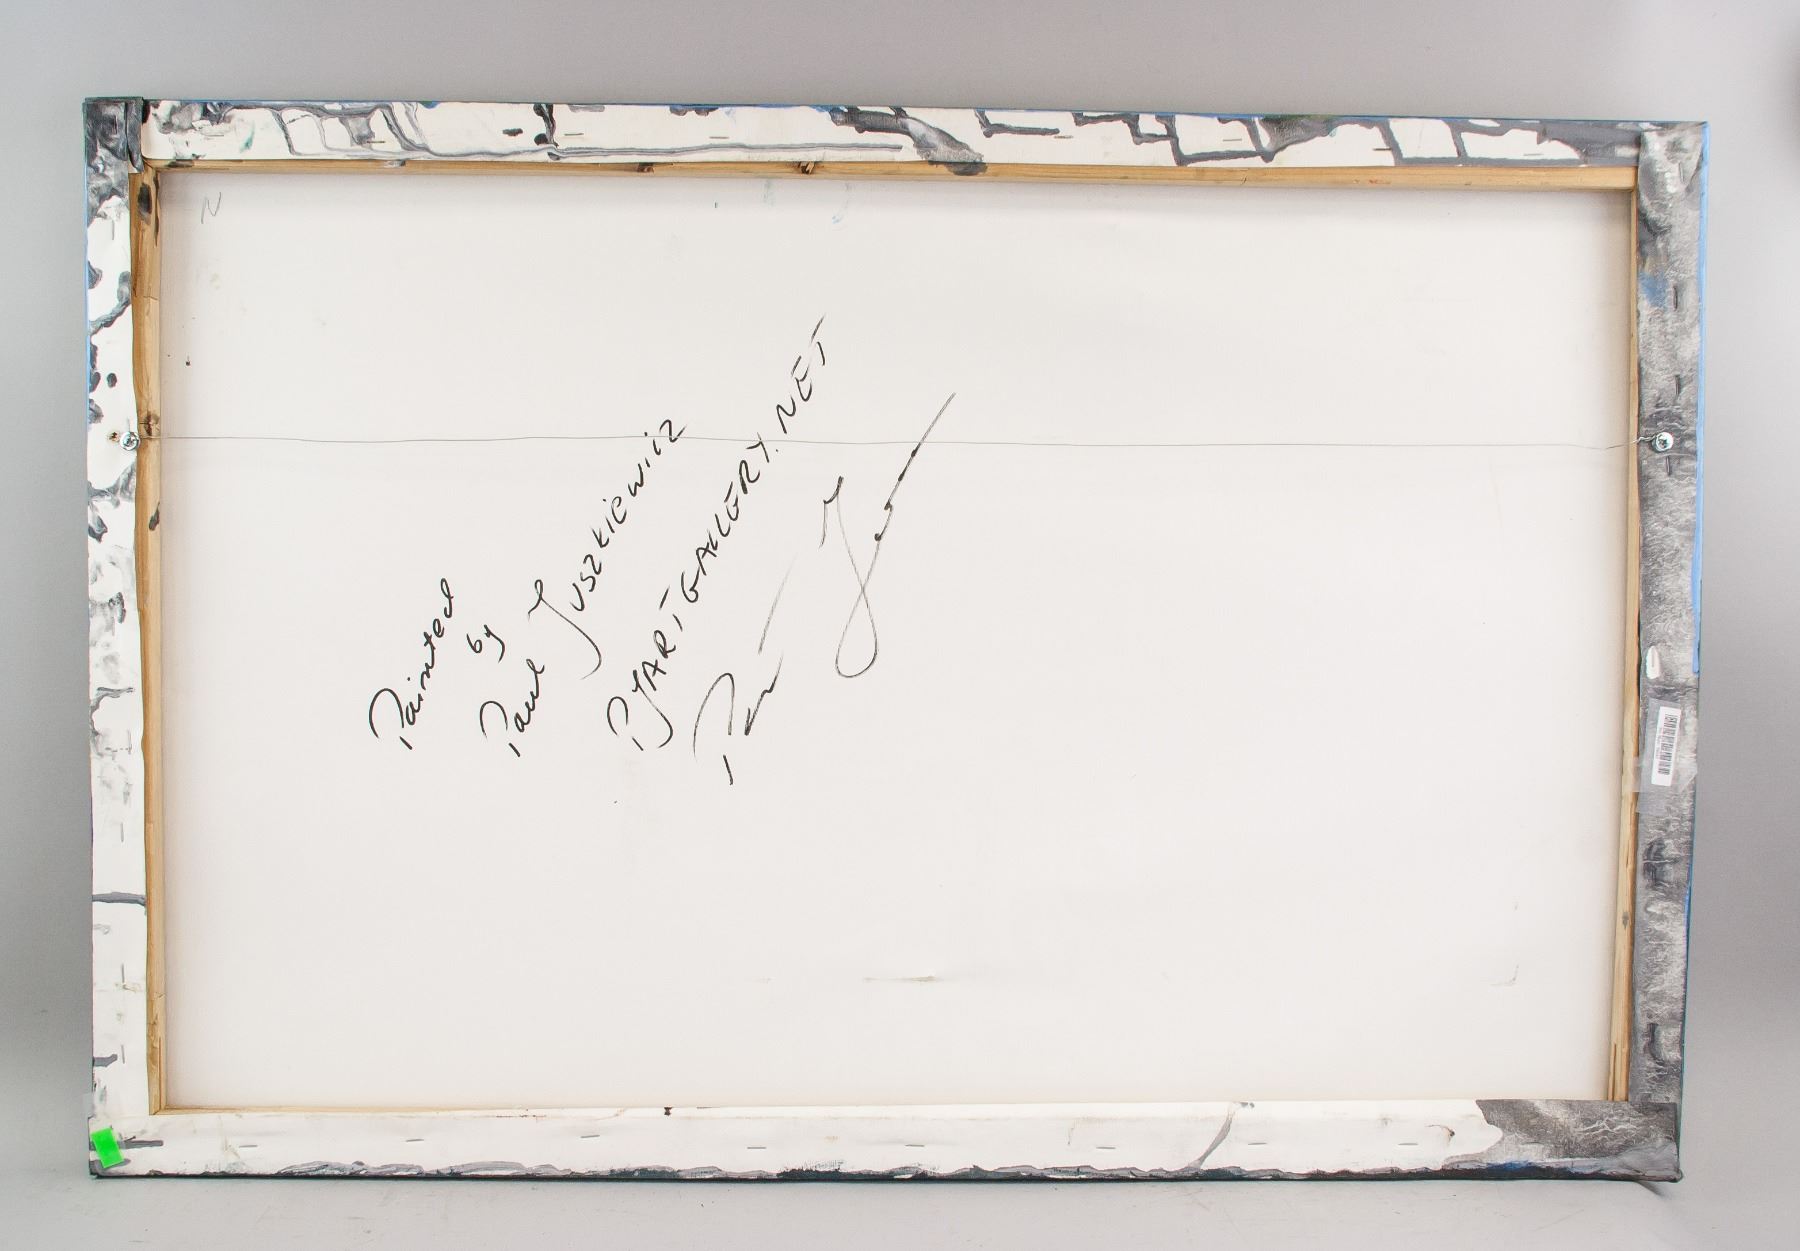 Painted
by
Paul Juszkiewicz
PJARTGALLERY.NET
N